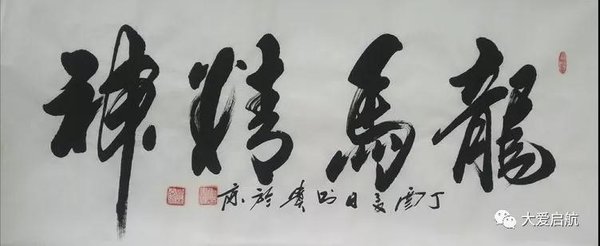 龍馬精神
丁酉夏日
大爱启航